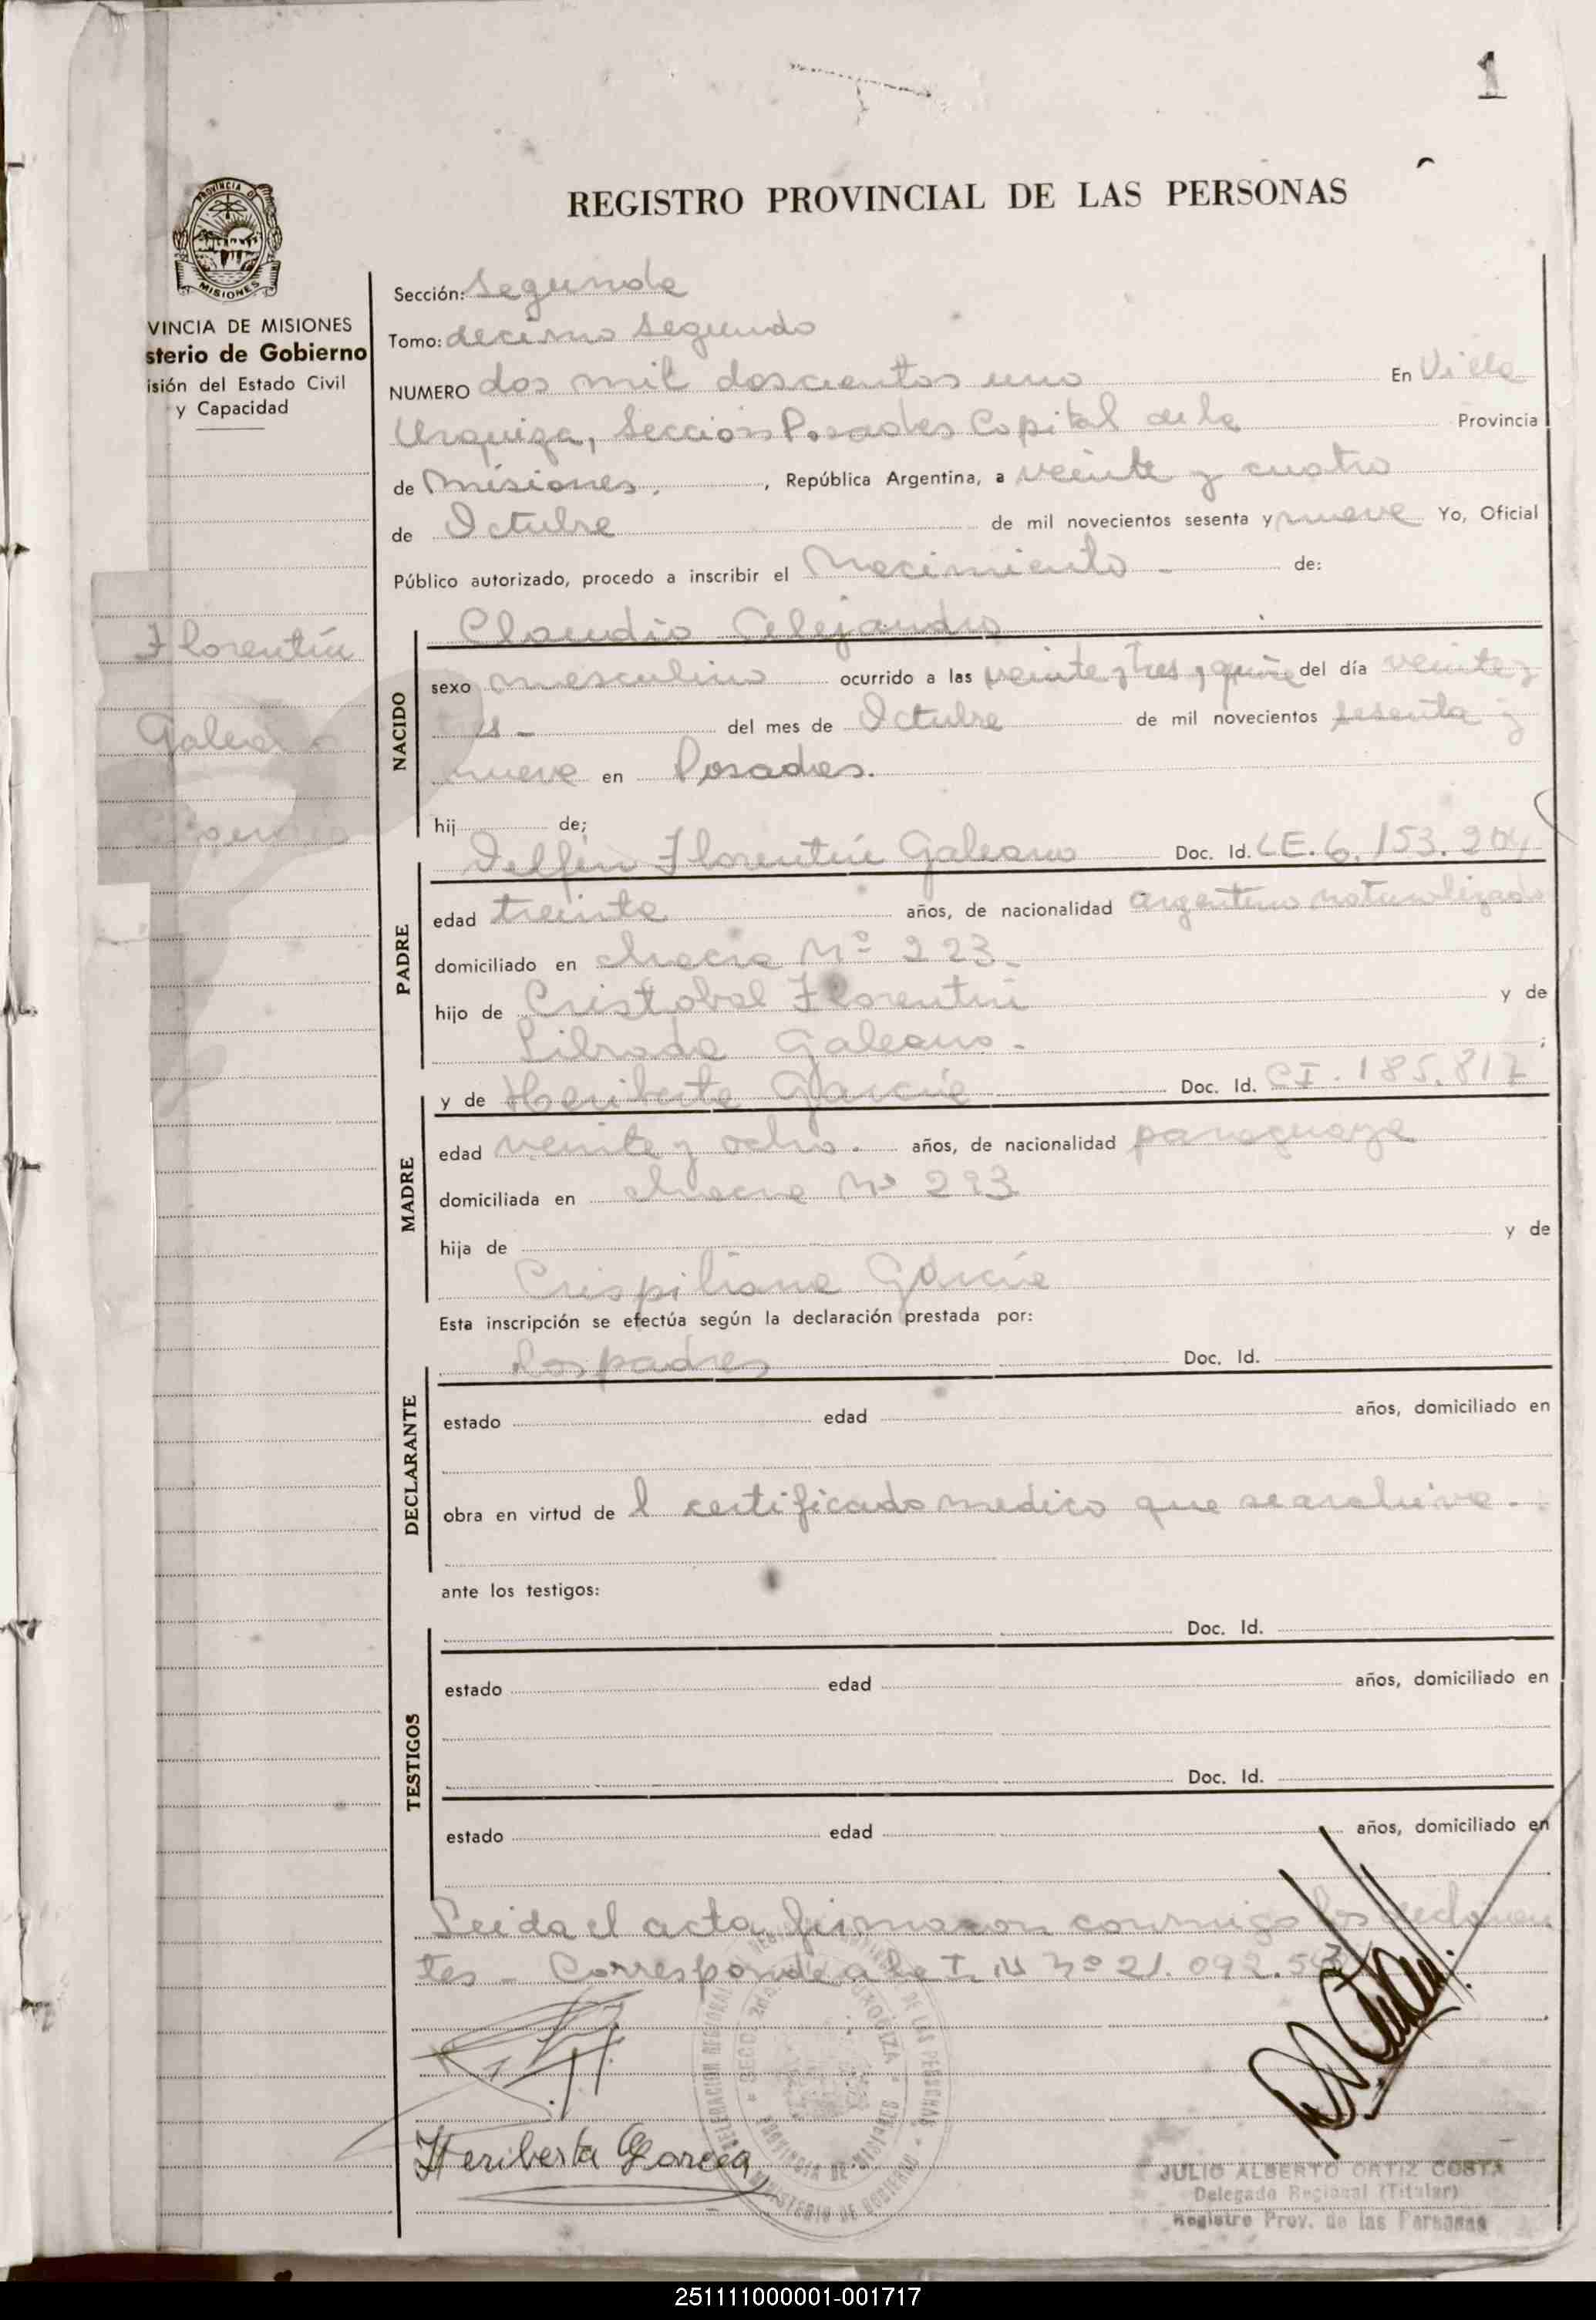 1
REGISTRO PROVINCIAL DE LAS PERSONAS
PROVINCIA DE
MISIONES
VINCIA DE MISIONES
sterio de Gobierno
isión del Estado Civil
y Capacidad
Sección: Segunda
Tomo: decimo segundo
NUMERO dos mil doscientos uno En Villa
Urquiza, Sección Posadas Capital de la Provincia
de Misiones, República Argentina, a veinte y cuatro
de Octubre de mil novecientos sesenta y nueve Yo, Oficial
Público autorizado, procedo a inscribir el Nacimiento - de:
Claudio Alejandro
Florentín
Galeano
NACIDO
sexo masculino ocurrido a las veinte y tres y quince del día veinte y
tres - del mes de Octubre de mil novecientos sesenta y
nueve en Posadas.
hij de;
Delfin Florentín Galeano Doc. Id. LE. 6.153.204
PADRE
edad treinta años, de nacionalidad argentino naturalizado
domiciliado en chacra Nº 223.
hijo de Cristobal Florentín y de
Librada Galeano - ;
y de Heriberta García Doc. Id. CI. 185.817
MADRE
edad veinte y ocho. años, de nacionalidad paraguaya
domiciliada en chacra Nº 223
hija de y de
Crispiliana García
Esta inscripción se efectúa según la declaración prestada por:
los padres Doc. Id.
DECLARANTE
estado edad años, domiciliado en
obra en virtud de l certificado medico que se archiva.
ante los testigos:
Doc. Id.
TESTIGOS
estado edad años, domiciliado en
Doc. Id.
estado edad años, domiciliado en
Leida el acta firmaron conmigo los declaran
tes - Corresponde a la I. Nº 21.092.
Heriberta Garcia
DELEGACION REGIONAL DE LAS PERSONAS
URQUIZA
PROVINCIA DE MISIONES
MINISTERIO DE GOBIERNO
JULIO ALBERTO ORTIZ COSTA
Delegado Regional (Titular)
Registro Prov. de las Personas
251111000001-001717